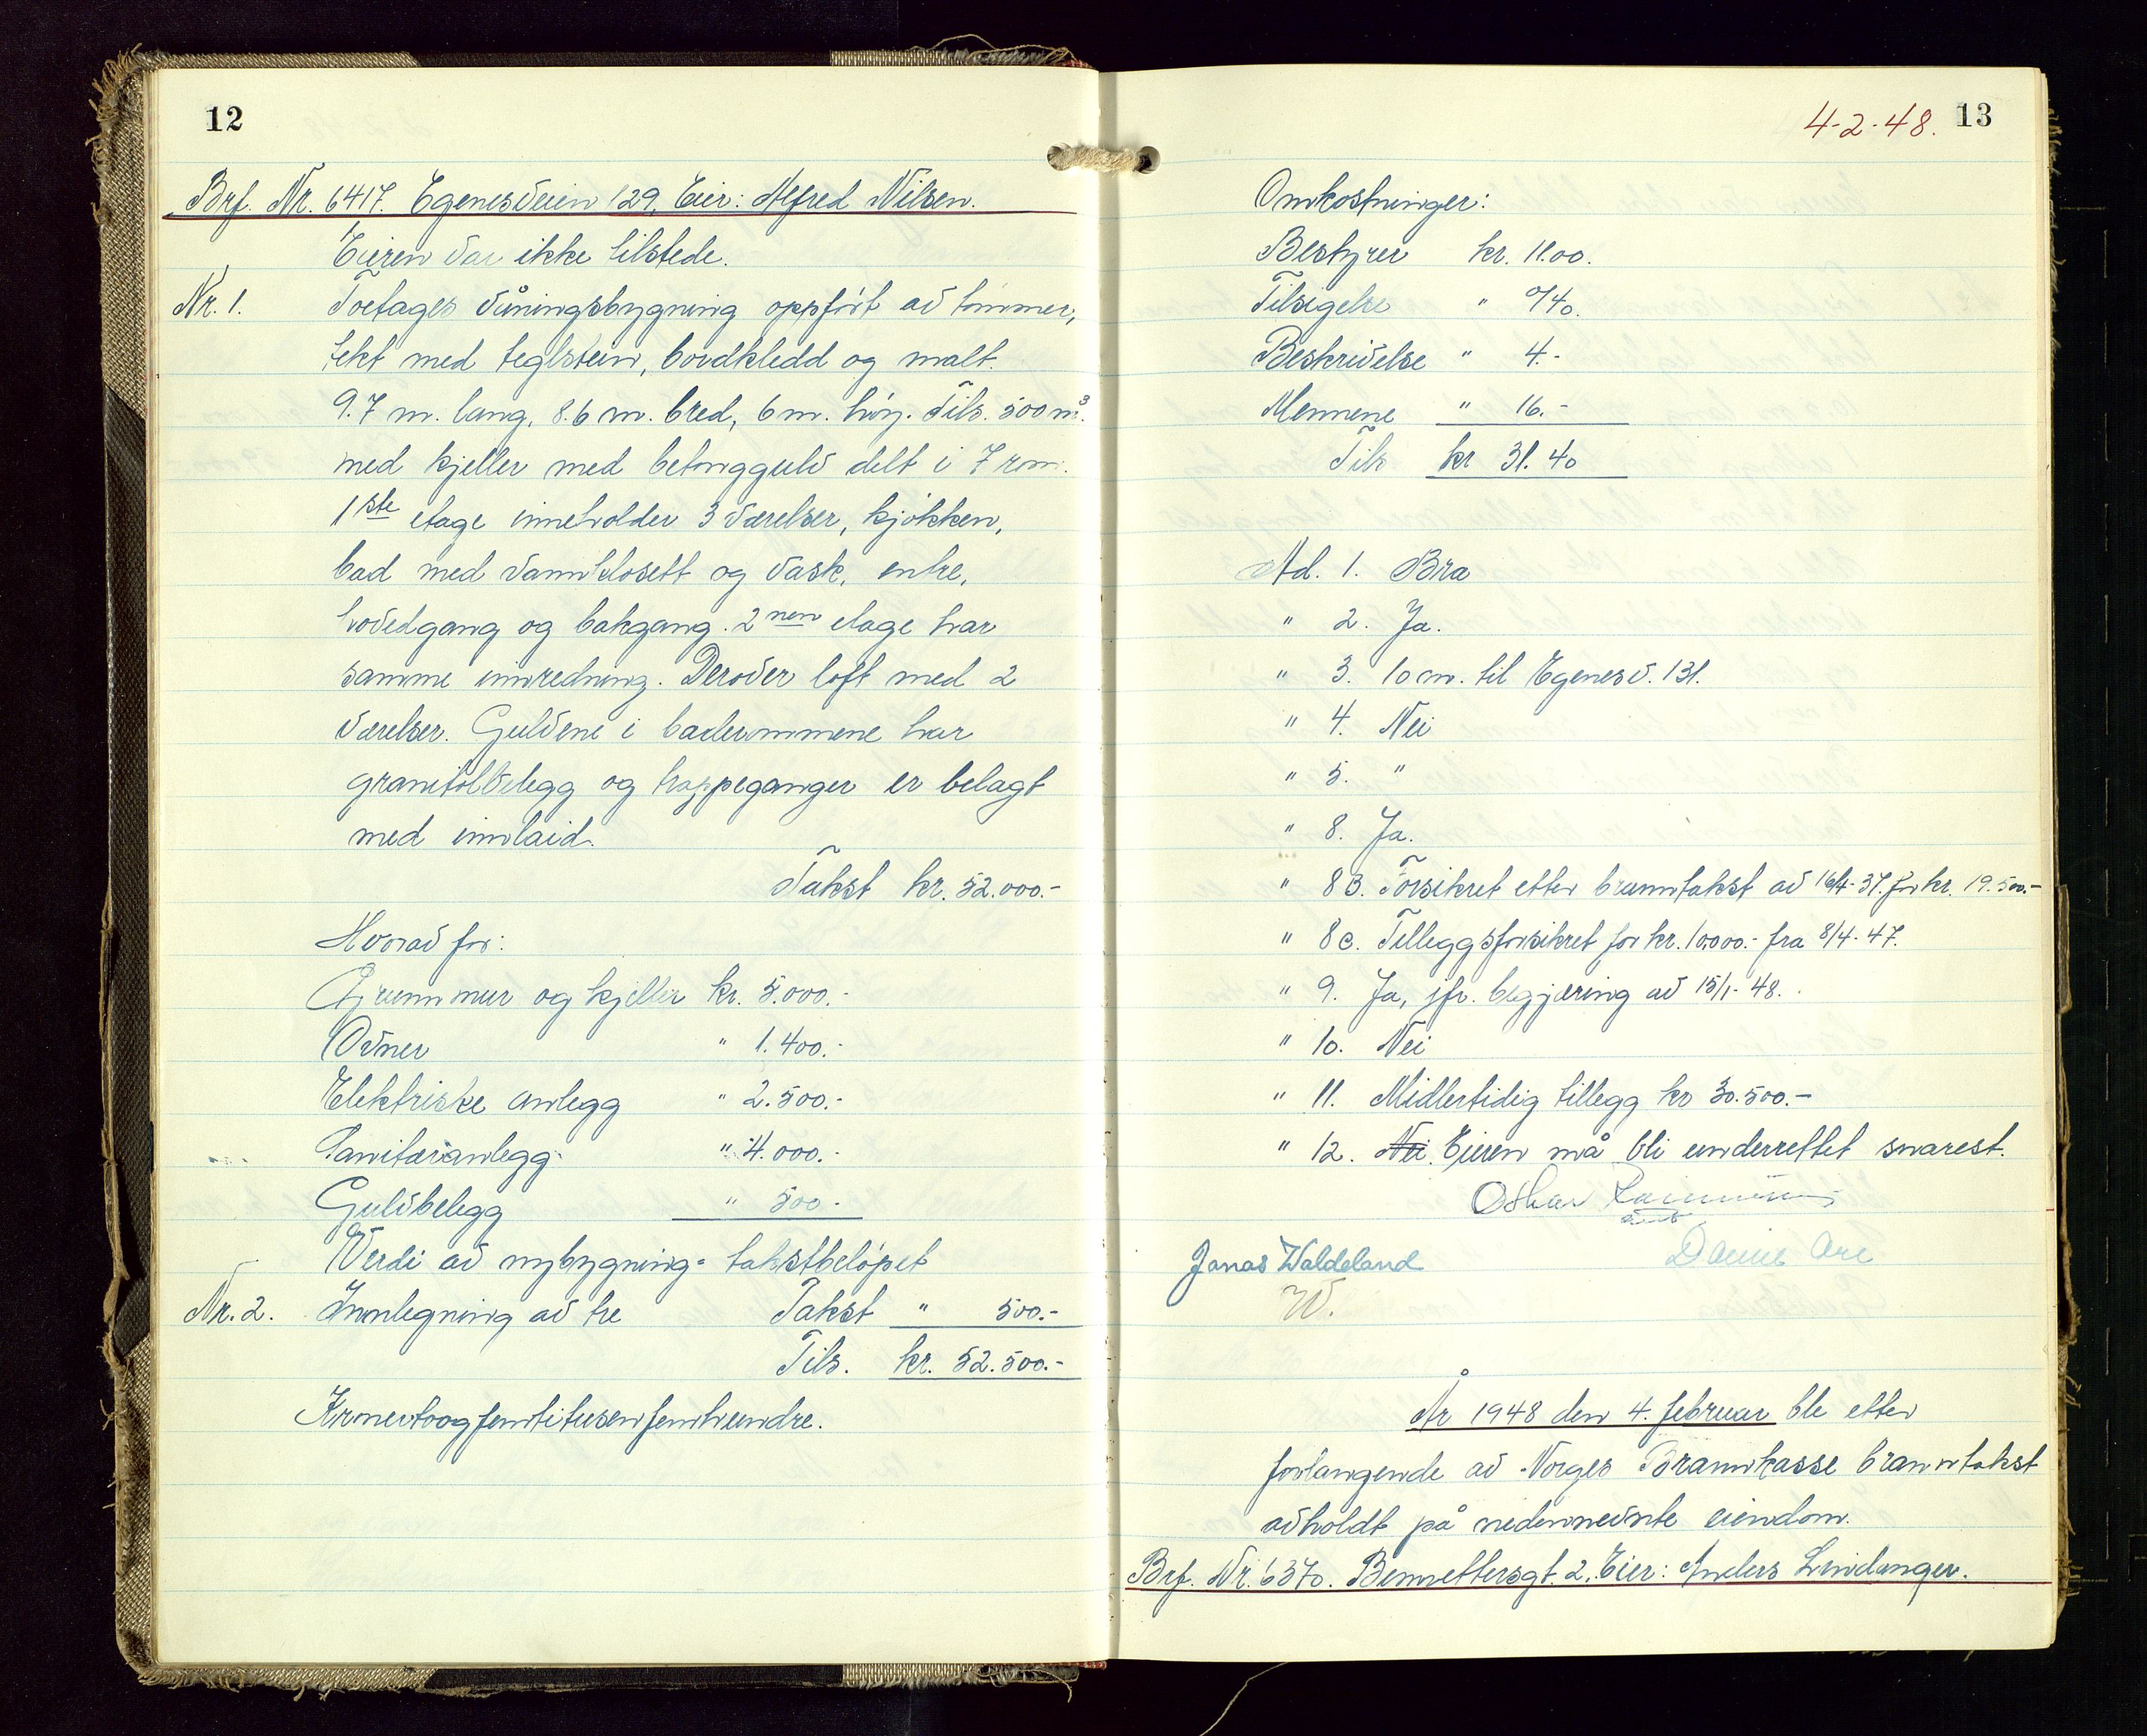 12
Brf. Nr. 6417. Egenesveien 129, Eier: Alfred Nilsen.
Eieren var ikke tilstede.
Nr. 1. Toetages våningsbygning oppført av tømmer,
tekt med teglstein, bordkledd og malt.
9.7 m. lang, 8.6 m. bred, 6 m. høy. Tils. 500 m³.
med kjeller med betonggulv delt i 7 rom.
1ste etage inneholder 3 værelser, kjøkken,
bad med vannklosett og vask, entre,
hovedgang og bakgang. 2nen etage har
samme innredning. Derover loft med 2
værelser. Gulvene i baderommene har
granitolbelegg og trappeganger er belagt
med innlaid.
Takst kr. 52.000.-
Hvorav for:
Grunnmur og kjeller kr. 5.000.-
Ovner " 1.400.-
Elektriske anlegg " 2.500.-
Sanitæranlegg " 4.000.-
Gulvbelegg " 500.-
Verdi av nybygning = takstbeløpet
Nr. 2. Innlegning av tre Takst " 500.-
Tils. kr. 52.500.-
Kronertoogfemtitusenfemhundre.
4-2-48. 13
Omkostninger:
Bestyrer kr. 11.00.
Tilsigelse " 0/40.
Beskrivelse " 4.-
Mennene " 16.-
Tils kr 31.40
Ad. 1. Bra
" 2. Ja.
" 3. 10 m. til Egenesv. 131.
" 4. Nei
" 5. "
" 8. Ja.
" 8B. Forsikret etter branntakst av 16/4-37. for kr. 19.500.-
" 8c. Tilleggsforsikret for kr. 10.000.- fra 8/4-47.
" 9. Ja, jfr. begjæring av 15/1-48.
" 10. Nei
" 11. Midlertidig tillegg kr 30.500.-
" 12. Nei. Eieren må bli underrettet snarest.
Oskar
Jonas Waldeland
W.
År 1948 den 4. februar ble etter
forlangende av Norges Brannkasse branntakst
avholdt på nedennevnte eiendom.
Brf. Nr. 6370. Bennettersgt. 2. Eier: Anders Lindanger.